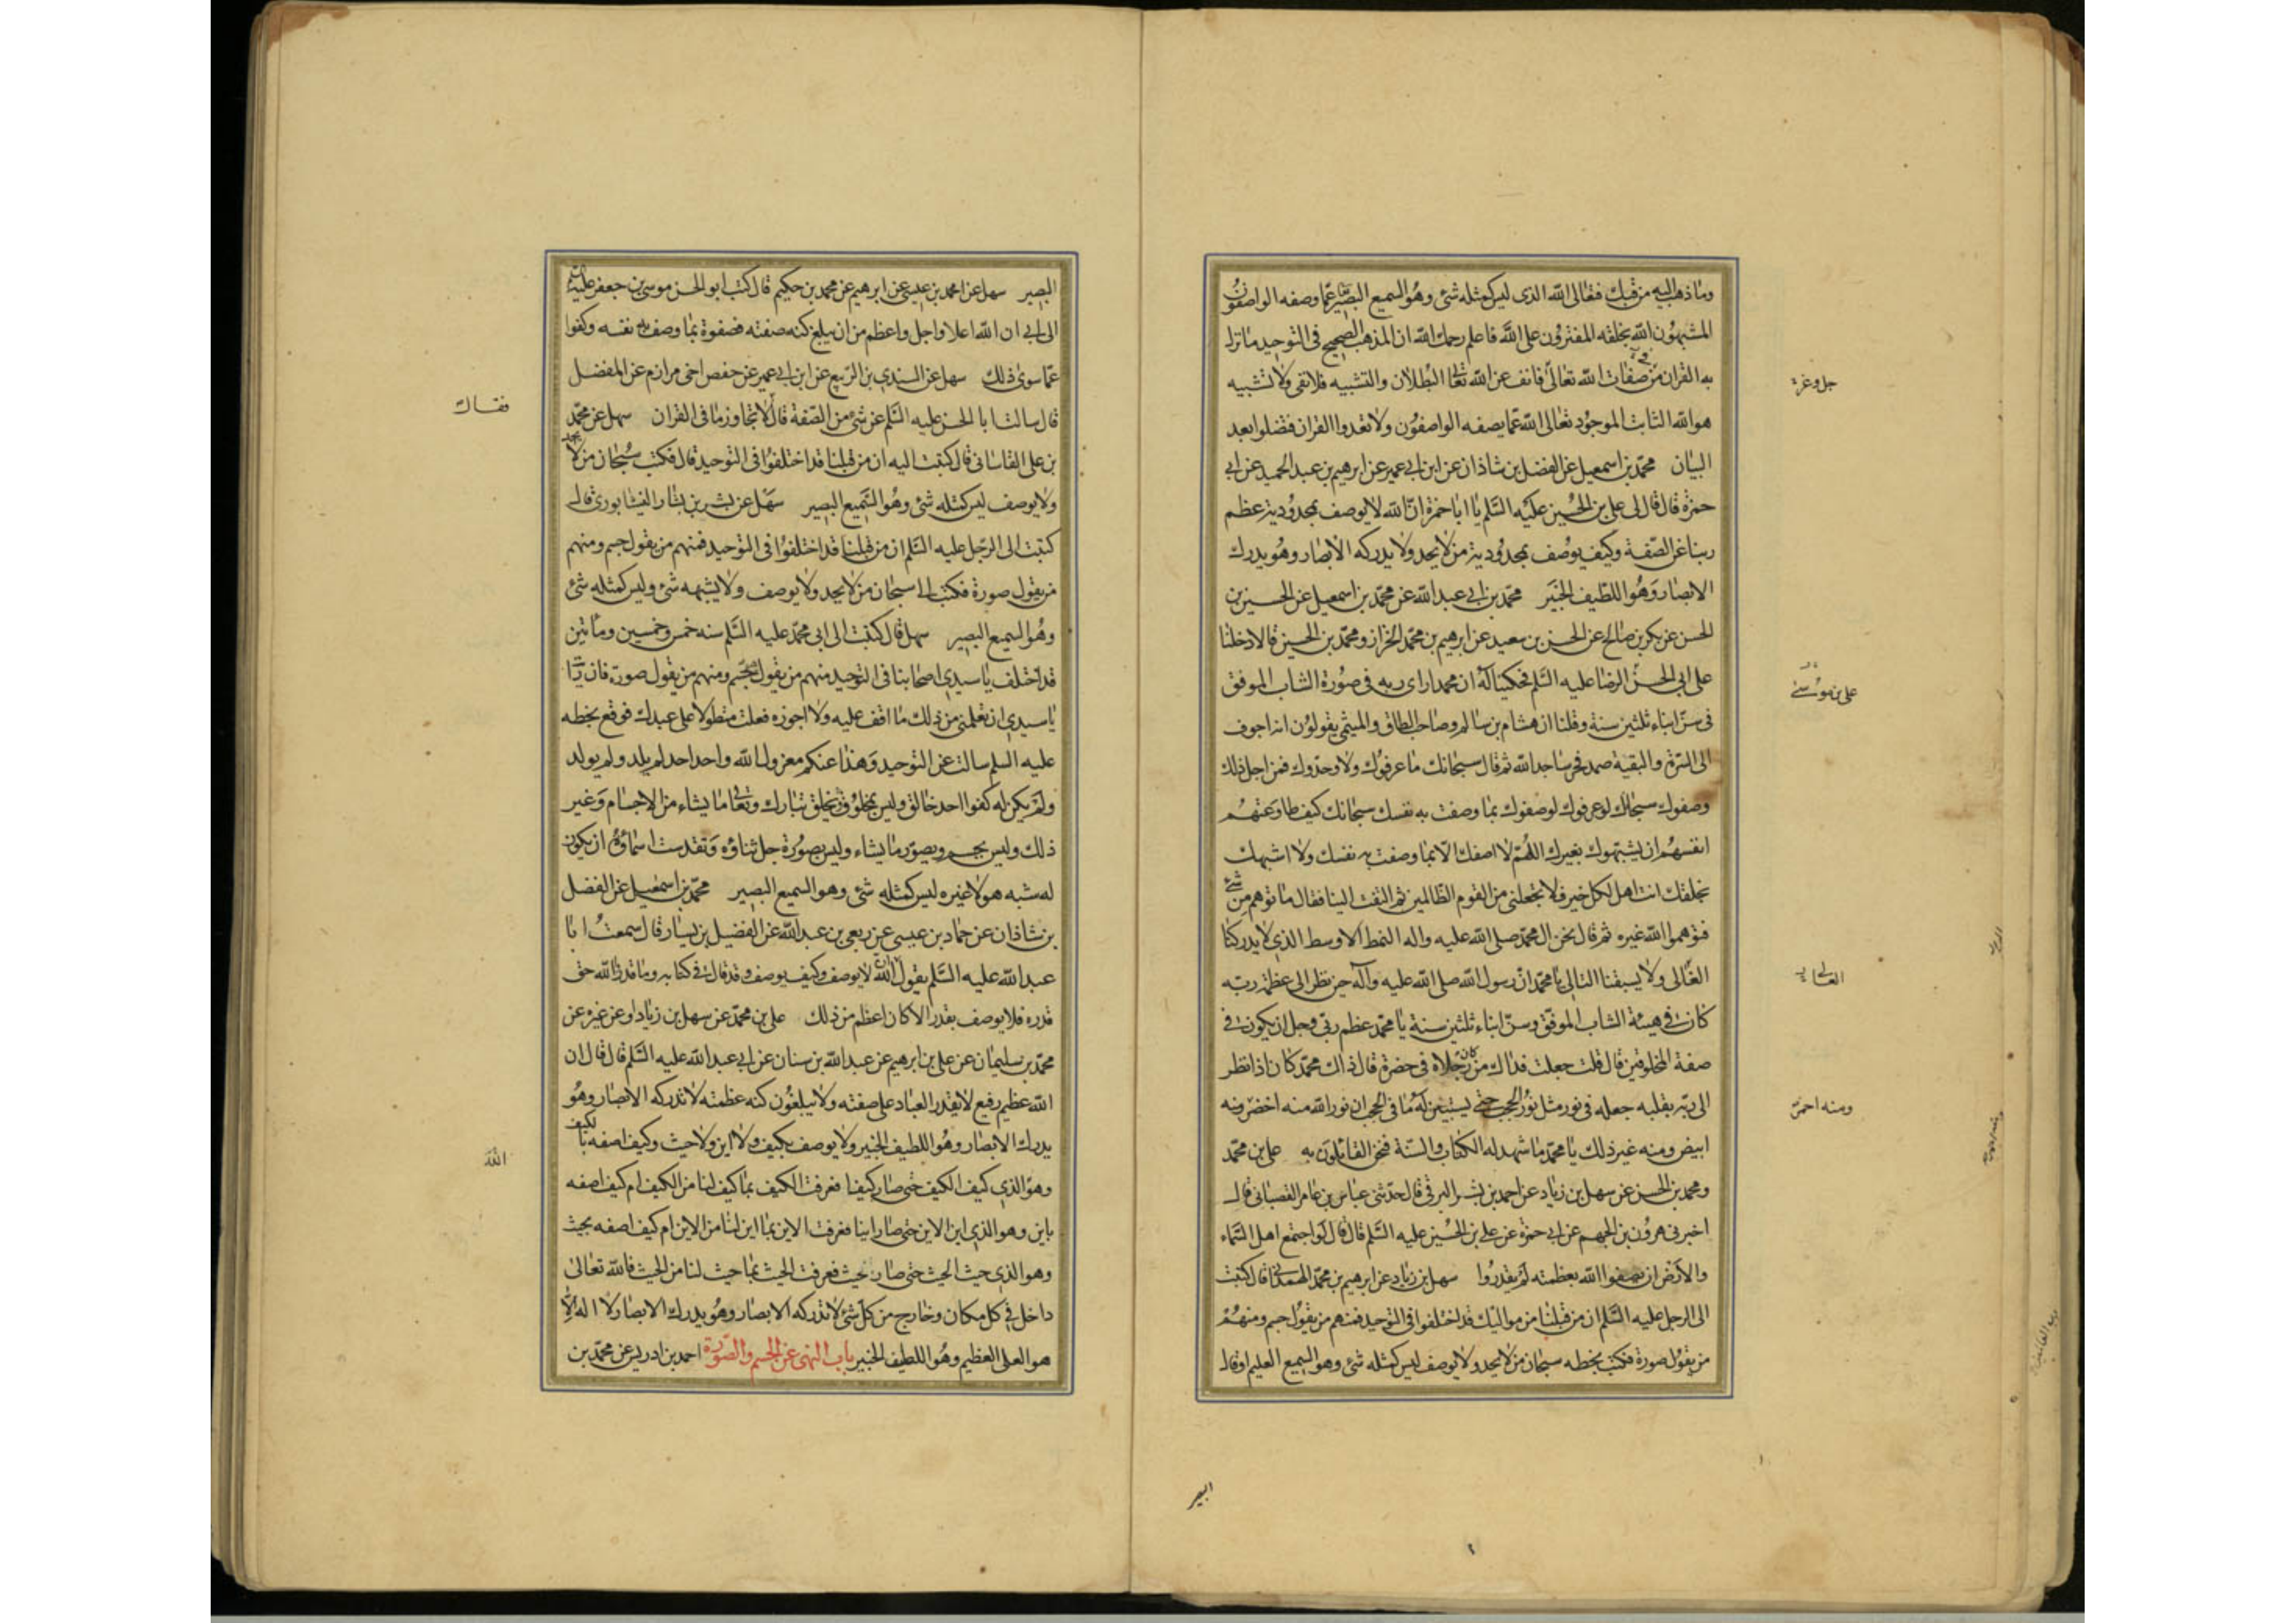 وما ذهب اليه من قبلك فتعالى الله الذى ليس كمثله شئ وهو السميع البصير تعالى عما وصفه الواصفون
المشبهون الله بخلقه المفترون على الله فاعلم رحمك الله ان المذهب الصحيح فى التوحيد ما نزل
به القران من صفات الله تعالى فانف عن الله تعالى البطلان والتشبيه فلا نفى ولا تشبيه
هو الله الثابت الموجود تعالى الله عما يصفه الواصفون ولا تعدوا القران فتضلوا بعد
البيان محمد بن اسمعيل عن الفضل بن شاذان عن ابن ابي عمير عن ابرهيم بن عبد الحميد عن ابي
حمزة قال قال لى على بن الحسين عليه السلم يا ابا حمزة ان الله لا يوصف بمحدودية عظم
ربنا عن الصفة وكيف يوصف بمحدودية من لا يحد ولا يدركه الابصار وهو يدرك
الابصار وهو اللطيف الخبير محمد بن ابي عبد الله عن محمد بن اسمعيل عن الحسين بن
الحسن عن بكر بن صالح عن الحسن بن سعيد عن ابرهيم بن محمد الخزاز ومحمد بن الحسين قالا دخلنا
على ابى الحسن الرضا عليه السلم فحكينا له ان محمدا راى ربه فى صورة الشاب الموفق
فى سن ابناء ثلثين سنة وقلنا ان هشام بن سالم وصاحب الطاق والميثمى يقولون انه اجوف
الى السرة والبقية صمد فخر ساجدا لله ثم قال سبحانك ما عرفوك ولا وحدوك فمن اجل ذلك
وصفوك سبحانك لو عرفوك لوصفوك بما وصفت به نفسك سبحانك كيف طاوعتهم
انفسهم ان يشبهوك بغيرك اللهم لا اصفك الا بما وصفت به نفسك ولا اشبهك
بخلقك انت اهل لكل خير فلا تجعلنى من القوم الظالمين ثم التفت الينا فقال ما توهم من شئ
فتوهموا الله غيره ثم قال نحن ال محمد صلى الله عليه واله النمط الاوسط الذى لا يدركنا
الغالى ولا يسبقنا التالى يا محمد ان رسول الله صلى الله عليه وآله حين نظر الى عظمة ربه
كان فى هيئة الشاب الموفق وسن ابناء ثلثين سنة يا محمد عظم ربى وجل ان يكون فى
صفة المخلوقين قال قلت جعلت فداك من كان رجلاه فى خضرة قال ذاك محمد كان اذا نظر
الى ربه بقلبه جعله فى نور مثل نور الحجب حتى يستبين له ما فى الحجب ان نور الله منه اخضر ومنه
ابيض ومنه غير ذلك يا محمد ما شهد له الكتاب والسنة فنحن القائلون به على بن محمد
ومحمد بن الحسن عن سهل بن زياد عن احمد بن بشر البرقى قال حدثنى عباس بن عامر القصبانى قال
اخبرنى هرون بن الجهم عن ابي حمزة عن على بن الحسين عليه السلم قال قال لو اجتمع اهل السماء
والارض ان يصفوا الله بعظمته لم يقدروا سهل بن زياد عن ابرهيم بن محمد الهمدانى قال كتبت
الى الرجل عليه السلم ان من قبلنا من مواليك قد اختلفوا فى التوحيد فمنهم من يقول جسم ومنهم
من يقول صورة فكتب بخطه سبحان من لا يحد ولا يوصف ليس كمثله شئ وهو السميع العليم او قال
جل وعز
على بن موسى
ومنه احمر
البصير
البصير سهل عن احمد بن عيسى عن ابرهيم عن محمد بن حكيم قال كتب ابو الحسن موسى بن جعفر عليه السلم
الى ابي ان الله اعلا واجل واعظم من ان يبلغ كنه صفته فصفوه بما وصف به نفسه وكفوا
عما سوى ذلك سهل عن السندي بن الربيع عن ابن ابي عمير عن حفص اخى مرازم عن المفضل
قال سالت ابا الحسن عليه السلم عن شئ من الصفة قال لا تجاوز ما فى القران سهل عن محمد
بن على القاسانى قال كتبت اليه ان من قبلنا قد اختلفوا فى التوحيد قال فكتب سبحان من لا يحد
ولا يوصف ليس كمثله شئ وهو السميع البصير سهل عن بشر بن بشار النيشابورى قال
كتبت الى الرجل عليه السلم ان من قبلنا قد اختلفوا فى التوحيد فمنهم من يقول جسم ومنهم
من يقول صورة فكتب الى سبحان من لا يحد ولا يوصف ولا يشبهه شئ وليس كمثله شئ
وهو السميع البصير سهل قال كتبت الى ابى محمد عليه السلم سنه خمس وخمسين ومأتين
قد اختلف يا سيدي اصحابنا فى التوحيد منهم من يقول جسم ومنهم من يقول صورة فان رايت
يا سيدي ان تعلمنى من ذلك ما اقف عليه ولا اجوزه فعلت متطولا على عبدك فوقع بخطه
عليه السلم سالت عن التوحيد وهذا عنكم معزول الله واحد احد لم يلد ولم يولد
ولم يكن له كفوا احد خالق وليس بمخلوق يخلق تبارك وتعالى ما يشاء من الاجسام وغير
ذلك وليس بجسم ويصور ما يشاء وليس بصورة جل ثناؤه وتقدست اسماؤه ان يكون
له شبه هو لا غيره ليس كمثله شئ وهو السميع البصير محمد بن اسمعيل عن الفضل
بن شاذان عن حماد بن عيسى عن ربعى بن عبد الله عن الفضيل بن يسار قال سمعت ابا
عبد الله عليه السلم يقول ان الله لا يوصف وكيف يوصف وقد قال فى كتابه وما قدروا الله حق
قدره فلا يوصف بقدر الا كان اعظم من ذلك على بن محمد عن سهل بن زياد او عن غيره عن
محمد بن سليمان عن على بن ابرهيم عن عبد الله بن سنان عن ابي عبد الله عليه السلم قال قال ان
الله عظيم رفيع لا يقدر العباد على صفته ولا يبلغون كنه عظمته لا تدركه الابصار وهو
يدرك الابصار وهو اللطيف الخبير ولا يوصف بكيف ولا اين ولا حيث وكيف اصفه بالكيف
وهو الذي كيف الكيف حتى صار كيفا فعرفت الكيف بما كيف لنا من الكيف ام كيف اصفه
باين وهو الذي اين الاين حتى صار اينا فعرفت الاين بما اين لنا من الاين ام كيف اصفه بحيث
وهو الذي حيث الحيث حتى صار حيث فعرفت الحيث بما حيث لنا من الحيث فالله تعالى
داخل فى كل مكان وخارج من كل شئ لا تدركه الابصار وهو يدرك الابصار لا اله الا
هو العلى العظيم وهو اللطيف الخبير باب النهى عن الجسم والصورة احمد بن ادريس عن محمد بن
فقال
الله